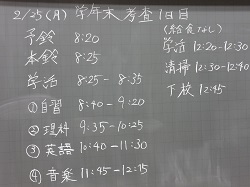 2/25(月) 学年末考査1日目
(給食なし)
予鈴 8:20
本鈴 8:25
学活 8:25-8:35
①自習 8:40-9:20
②理科 9:35-10:25
③英語 10:40-11:30
④音楽 11:45-12:15
学活 12:20-12:30
清掃 12:30-12:40
下校 12:45